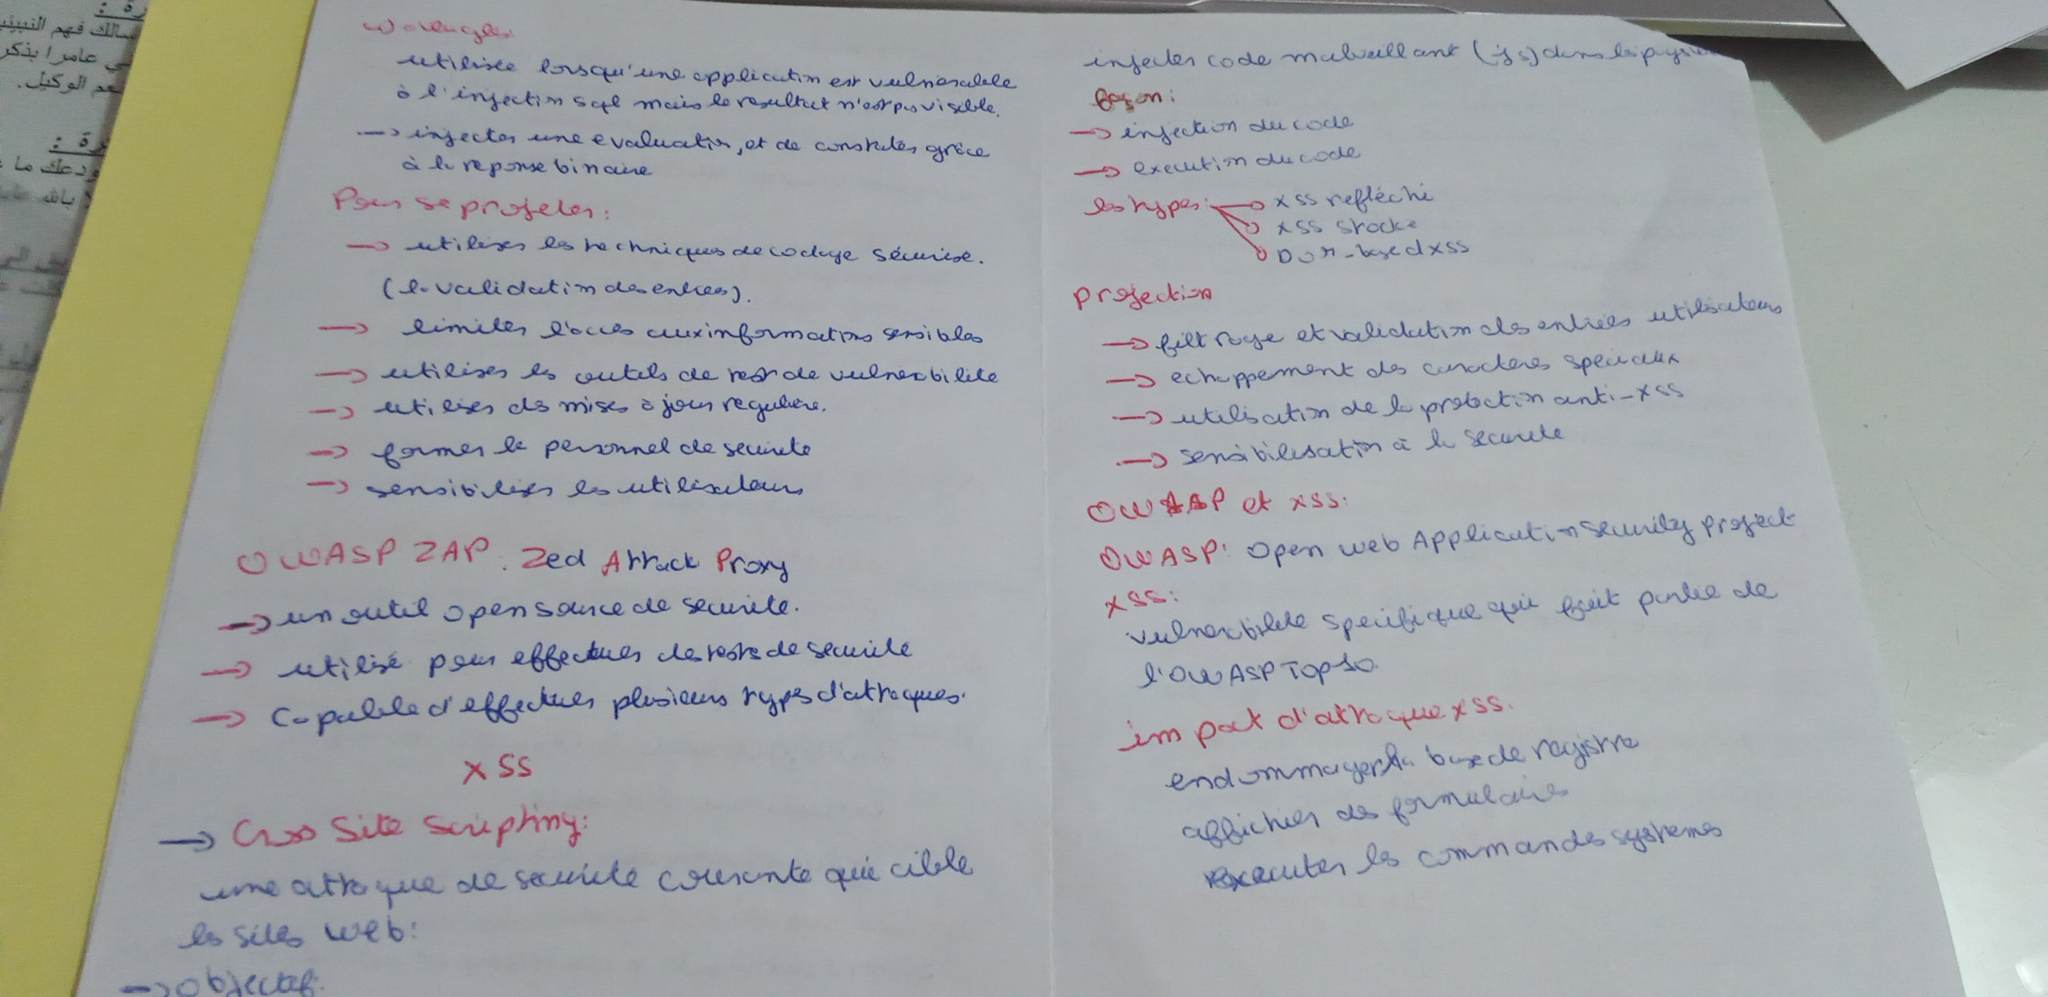 utilisée lorsqu'une application est vulnerable
à l'injection sql mais le resultat n'est pas visible.
→ injecter une evaluation, et de constater grâce
à la reponse binaire
Pour se proteger :
→ utiliser les techniques de codage sécurisé.
(la validation des entrees).
→ limiter l'acces aux informations sensibles
→ utiliser les outils de test de vulnerabilite
→ utiliser des mises à jour reguliere.
→ former le personnel de securite
→ sensibiliser les utilisateurs
OWASP ZAP : Zed Attack Proxy
→ un outil open source de securite.
→ utilisé pour effectuer des tests de securite
→ Capable d'effectuer plusieurs types d'attaques.
XSS
→ Cross Site Scripting :
une attaque de securite courante qui cible
les sites web :
→ objectif :
injecter code malveillant (js) dans les
façon :
→ injection du code
→ execution du code
les types : → XSS refléchi
→ XSS stocke
→ DOM-based XSS
protection
→ filtrage et validation des entrées utilisateurs
→ echappement des caracteres speciaux
→ utilisation de la protection anti-XSS
→ sensibilisation à la securite
OWASP et XSS :
OWASP : Open Web Application Security project
XSS :
vulnerabilite specifique qui fait partie de
l'OWASP Top 10.
impact d'attaque XSS.
endommager la base de registre
afficher des formulaires
executer les commandes systemes
سالك فهم النبيين
عامرا بذكر
نعم الوكيل.